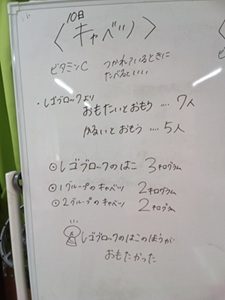 10日
〈キャベツ〉
ビタミンC つかれているときに
たべるといい
・レゴブロックより
おもたいとおもう ‥‥ 7人
かるいとおもう ‥‥ 5人
⊙レゴブロックのはこ 3キログラム
⊙1グループのキャベツ 2キログラム
⊙2グループのキャベツ 2キログラム
レゴブロックのはこのほうが
おもたかった